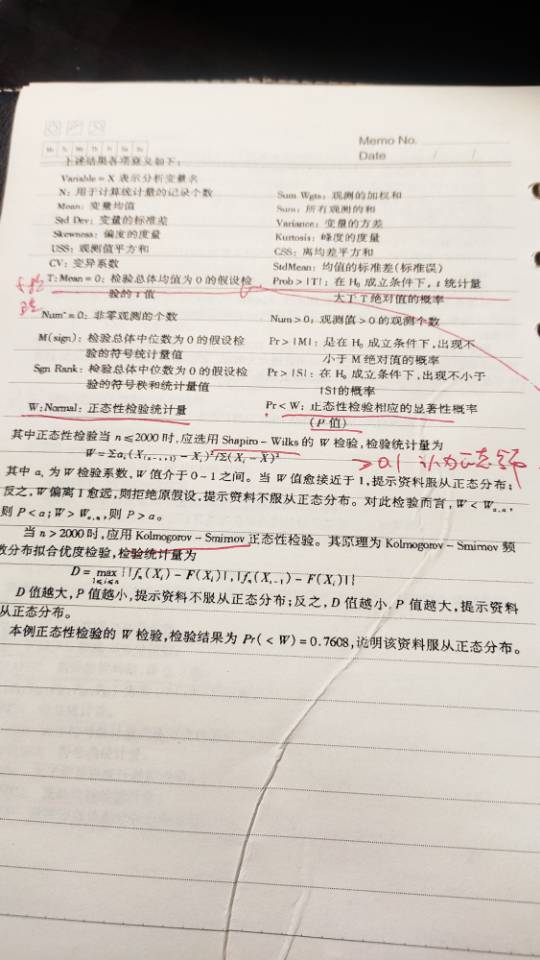 Memo No.
Mo Tu We Th Fr Sa Su
Date / /
下述结果各项意义如下：
Variable = X 表示分析变量名
N：用于计算统计量的记录个数 Sum Wgts：观测的加权和
Mean：变量均值 Sum：所有观测的和
Std Dev：变量的标准差 Variance：变量的方差
Skewness：偏度的度量 Kurtosis：峰度的度量
USS：观测值平方和 CSS：离均差平方和
CV：变异系数 StdMean：均值的标准差(标准误)
T:Mean = 0：检验总体均值为 0 的假设检 Prob > |T|：在 H₀ 成立条件下，t 统计量
验的 t 值 大于 T 绝对值的概率
Num^= 0：非零观测的个数 Num > 0：观测值 > 0 的观测个数
M(sign)：检验总体中位数为 0 的假设检 Pr > |M|：是在 H₀ 成立条件下，出现不
验的符号统计量值 小于 M 绝对值的概率
Sgn Rank：检验总体中位数为 0 的假设 Pr > |S|：在 H₀ 成立条件下，出现不小于
检验的符号秩和统计量值 |S|的概率
W:Normal：正态性检验统计量 Pr < W：正态性检验相应的显著性概率
(P 值)
其中正态性检验当 n ≤ 2000 时，应选用 Shapiro – Wilks 的 W 检验，检验统计量为
W = Σaᵢ(X₍ₙ₋ᵢ₊₁₎ − Xᵢ)²/Σ(Xᵢ − X̄)²
>0.1 认为正态
其中 aᵢ 为 W 检验系数，W 值介于 0~1 之间。当 W 值愈接近于 1，提示资料服从正态分布；
反之，W 偏离 1 愈远，则拒绝原假设，提示资料不服从正态分布。对此检验而言，W < Wα,n，
则 P < α；W > Wα,n，则 P > α。
当 n > 2000 时，应用 Kolmogorov – Smirnov 正态性检验。其原理为 Kolmogorov – Smirnov 频
数分布拟合优度检验，检验统计量为
D = max{|fₙ(Xᵢ) − F(Xᵢ)|，|fₙ(Xᵢ₋₁) − F(Xᵢ)|}
1≤i≤n
D 值越大，P 值越小，提示资料不服从正态分布；反之，D 值越小，P 值越大，提示资料
从正态分布。
本例正态性检验的 W 检验，检验结果为 Pr( < W) = 0.7608，说明该资料服从正态分布。